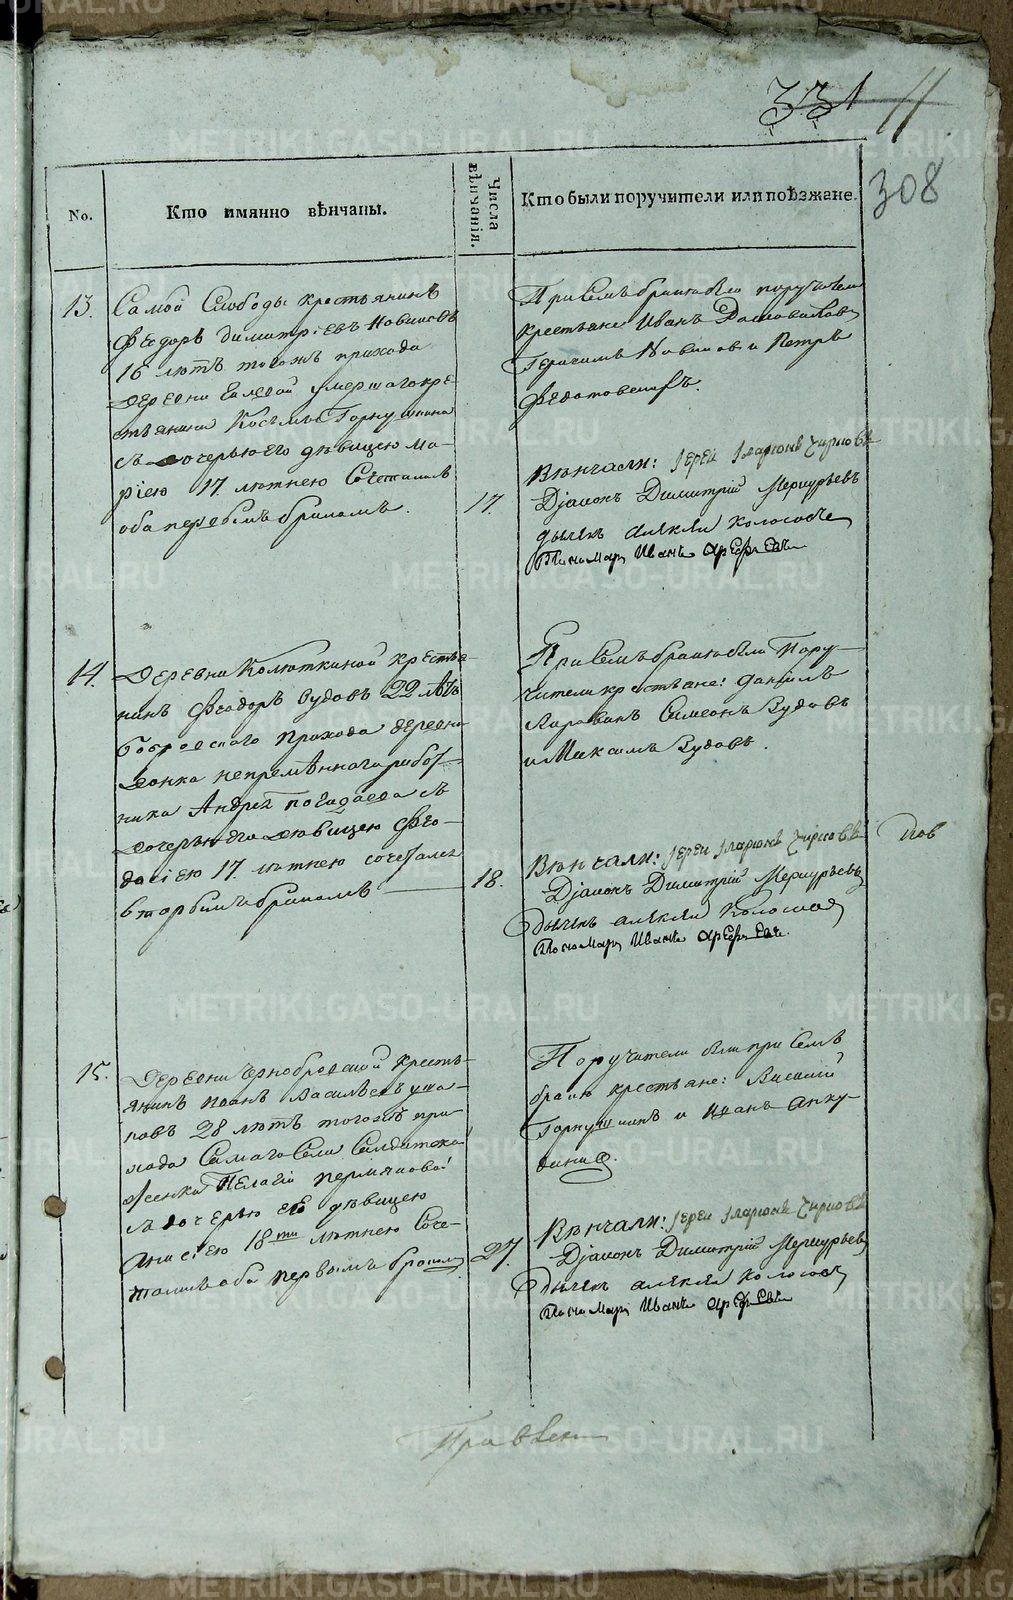 331 11
308
No.
Кто имянно вѣнчаны.
Числа вѣнчанія.
Кто были поручители или поѣзжане.
13.
Самой Слободы крестьянинъ
Феодоръ Димитріевъ Новиковъ
18 лѣтъ тогожъ прихода
деревни умершаго кре-
стьянина Космы Горкунина
съ дочерью его дѣвицею Ма-
ріею 17. лѣтнею Сочетались
оба первымъ бракомъ.
17.
При семъ бракѣ были поручители
крестьяне Иванъ
Герасимъ Новиковъ и Петръ
Вѣнчали: Іерей Иларіонъ Чирковъ
Діаконъ Димитрій Меркурьевъ
дьячекъ Алексѣй Колосовъ
Пономарь Иванъ Арефьевъ
14.
Деревни Колюткиной крестья-
нинъ Феодоръ Зудовъ 22 лѣтъ
Бобровскаго прихода деревни
непремѣннаго работ-
ника Андрея Погадаева съ
дочерью его дѣвицею Фео-
досіею 17. лѣтнею сочетался
вторымъ бракомъ
18.
При семъ бракѣ были Пору-
чители крестьяне: Даніилъ
Симеонъ Зудовъ
и Максимъ Зудовъ.
Вѣнчали: Іерей Иларіонъ Чирковъ
Діаконъ Димитрій Меркурьевъ
Дьячекъ Алексѣй Колосовъ
Пономарь Иванъ Арефьевъ.
15.
Деревни Чернобровской Кресть-
янинъ Иоанъ Васильевъ Уша-
ковъ 28 лѣтъ тогожъ при-
хода Самаго Села Салдатской
Женки Пелагіи Пермяковой
съ дочерью еѣ дѣвицею
Анисіею 18ти лѣтнею Соче-
тались оба первымъ бракомъ
27.
Поручители были при семъ
бракѣ крестьяне: Василій
Горкунинъ и Иванъ Анку-
диновъ.
Вѣнчали: Іерей Иларіонъ Чирковъ
Діаконъ Димитрій Меркурьевъ
Дьячекъ Алексѣй Колосовъ
Пономарь Иванъ Арефьевъ
METRIKI.GASO-URAL.RU